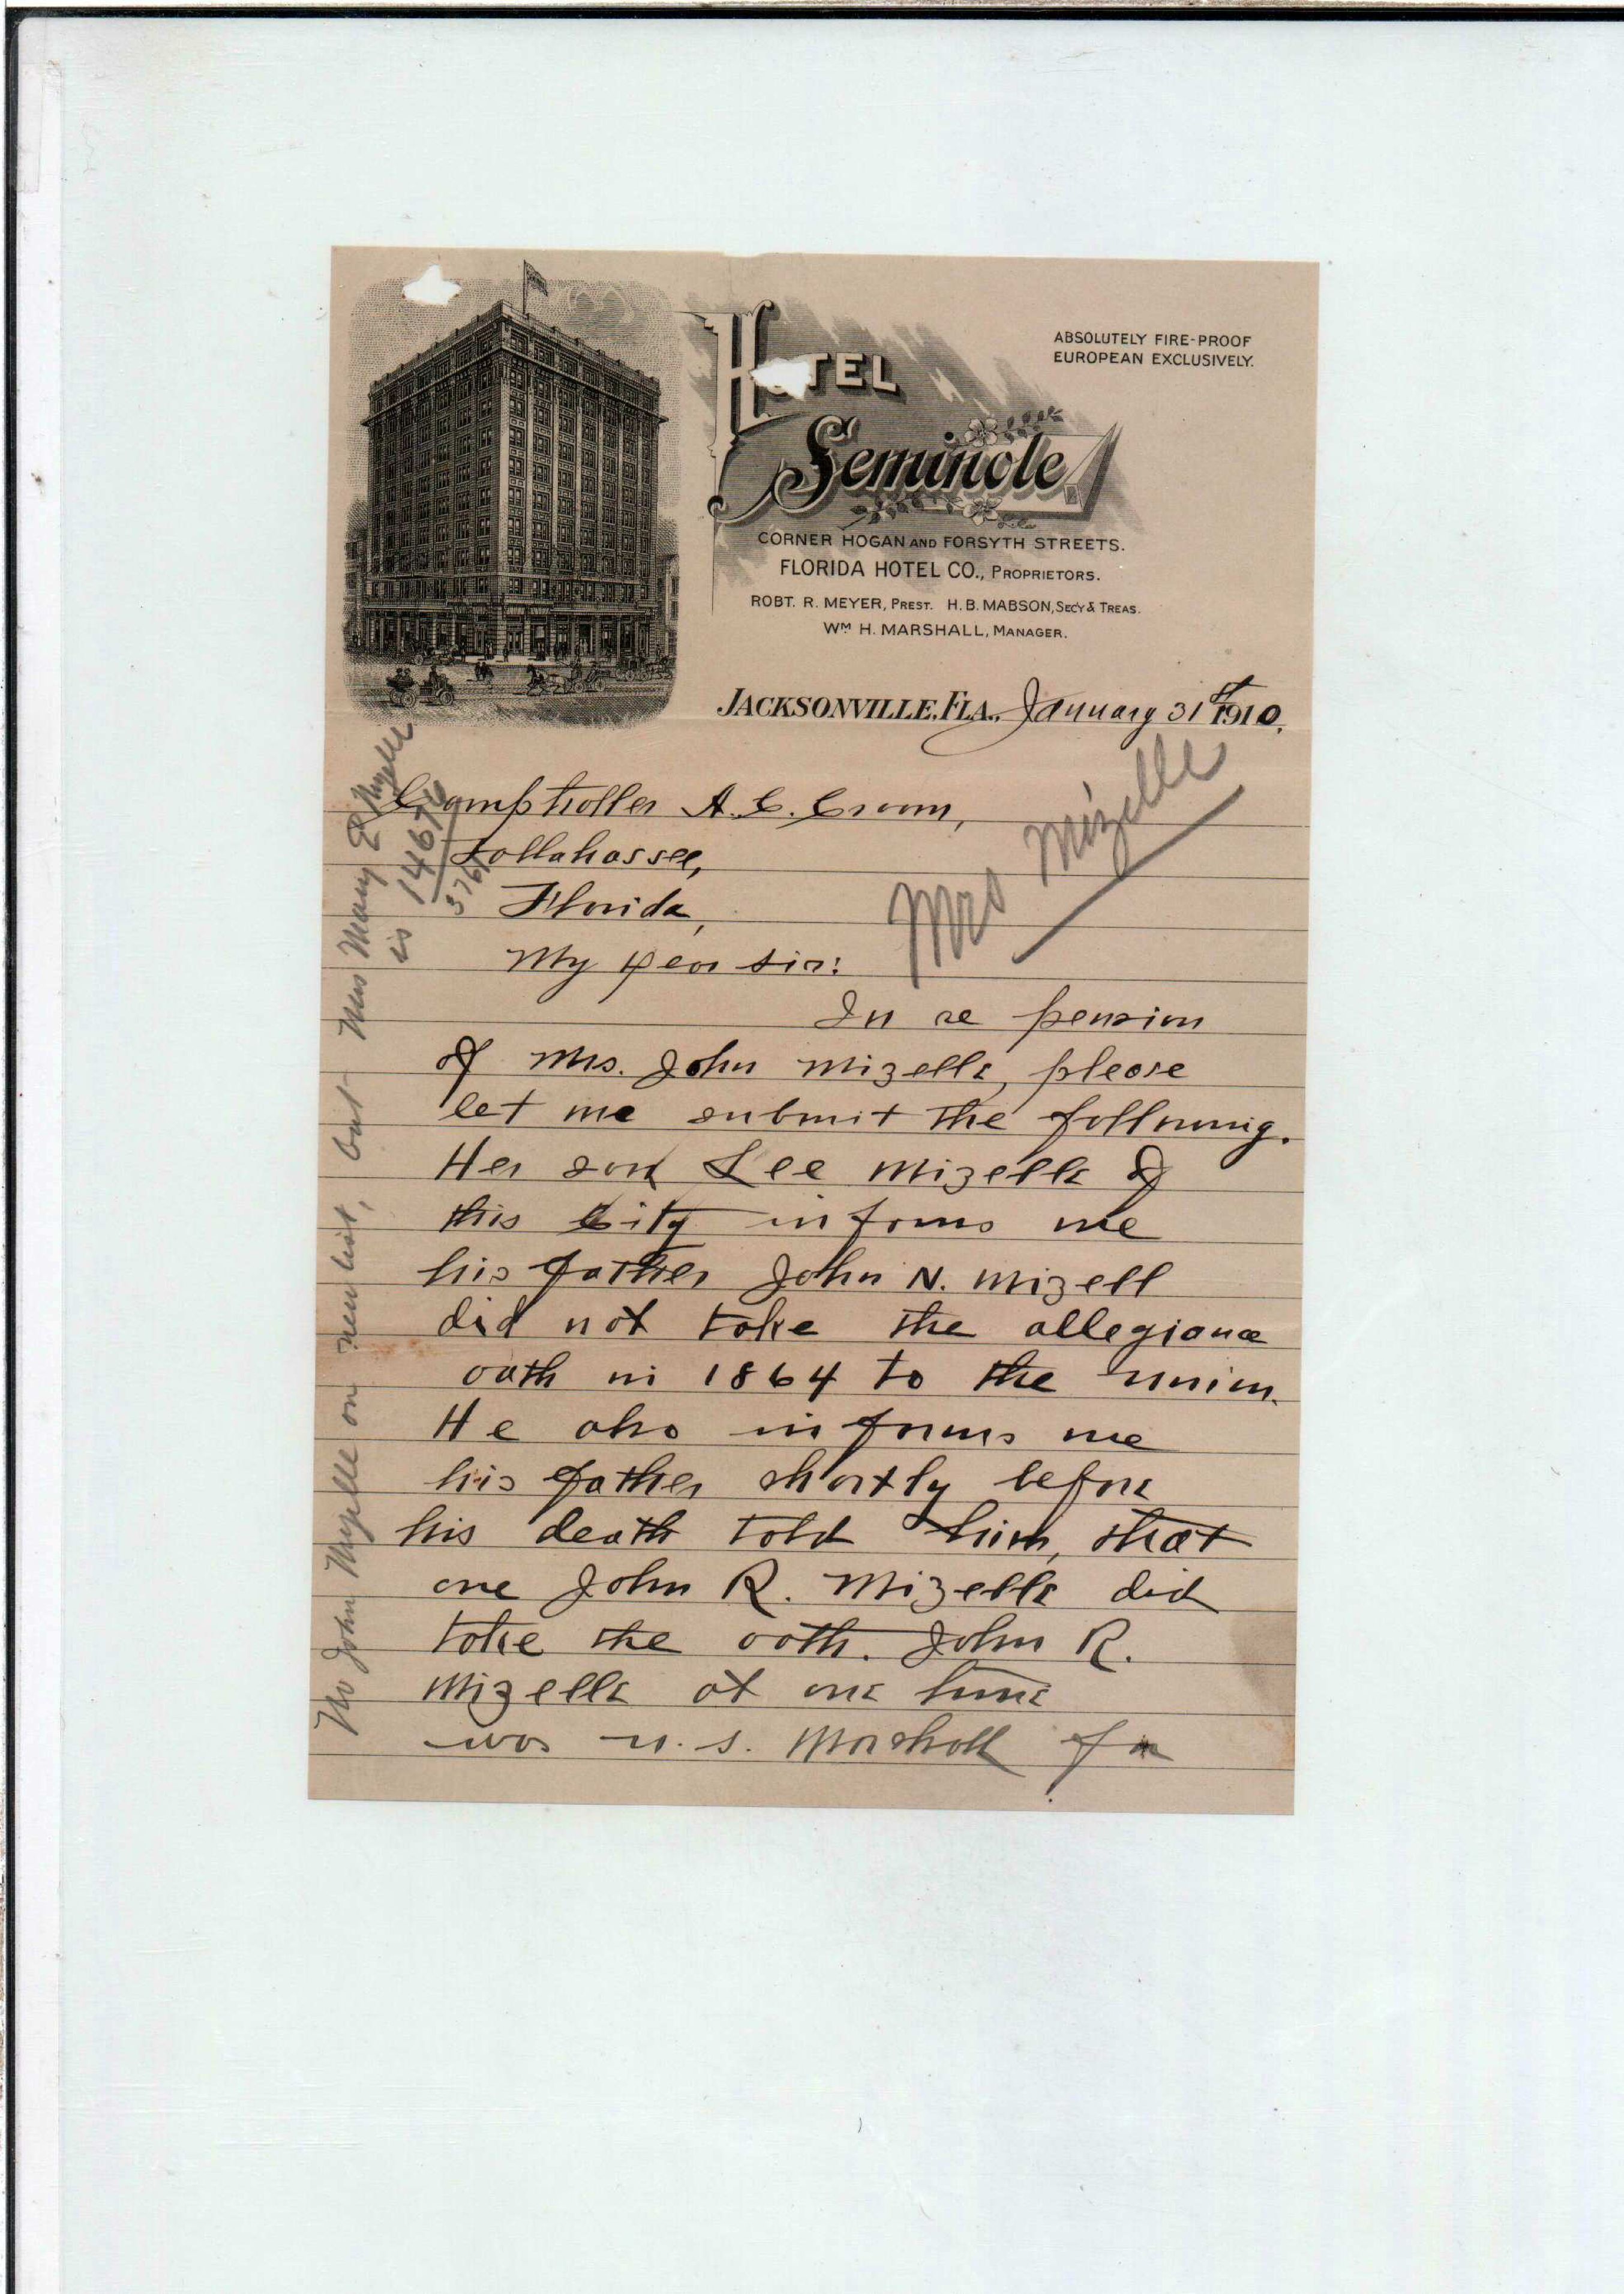 HOTEL
Seminole
ABSOLUTELY FIRE-PROOF
EUROPEAN EXCLUSIVELY.
CORNER HOGAN AND FORSYTH STREETS.
FLORIDA HOTEL CO., PROPRIETORS.
ROBT. R. MEYER, PREST. H. B. MABSON, SECY & TREAS.
WM H. MARSHALL, MANAGER.
JACKSONVILLE, FLA., January 31st 1910.
Comptroller A. C. Croom,
Tallahassee,
Florida,
My Dear Sir:
Mrs Mizelle
In re pension
of Mrs. John Mizelle, please
let me submit the following.
Her son Lee Mizelle of
this City informs me
his father John N. Mizell
did not take the allegiance
oath in 1864 to the Union.
He also informs me
his father shortly before
his death told him, that
one John R. Mizelle did
take the oath. John R.
Mizelle at one time
was U. S. Marshall for
No John Mizelle on new list, but Mrs Mary E Mizelle
is 14676